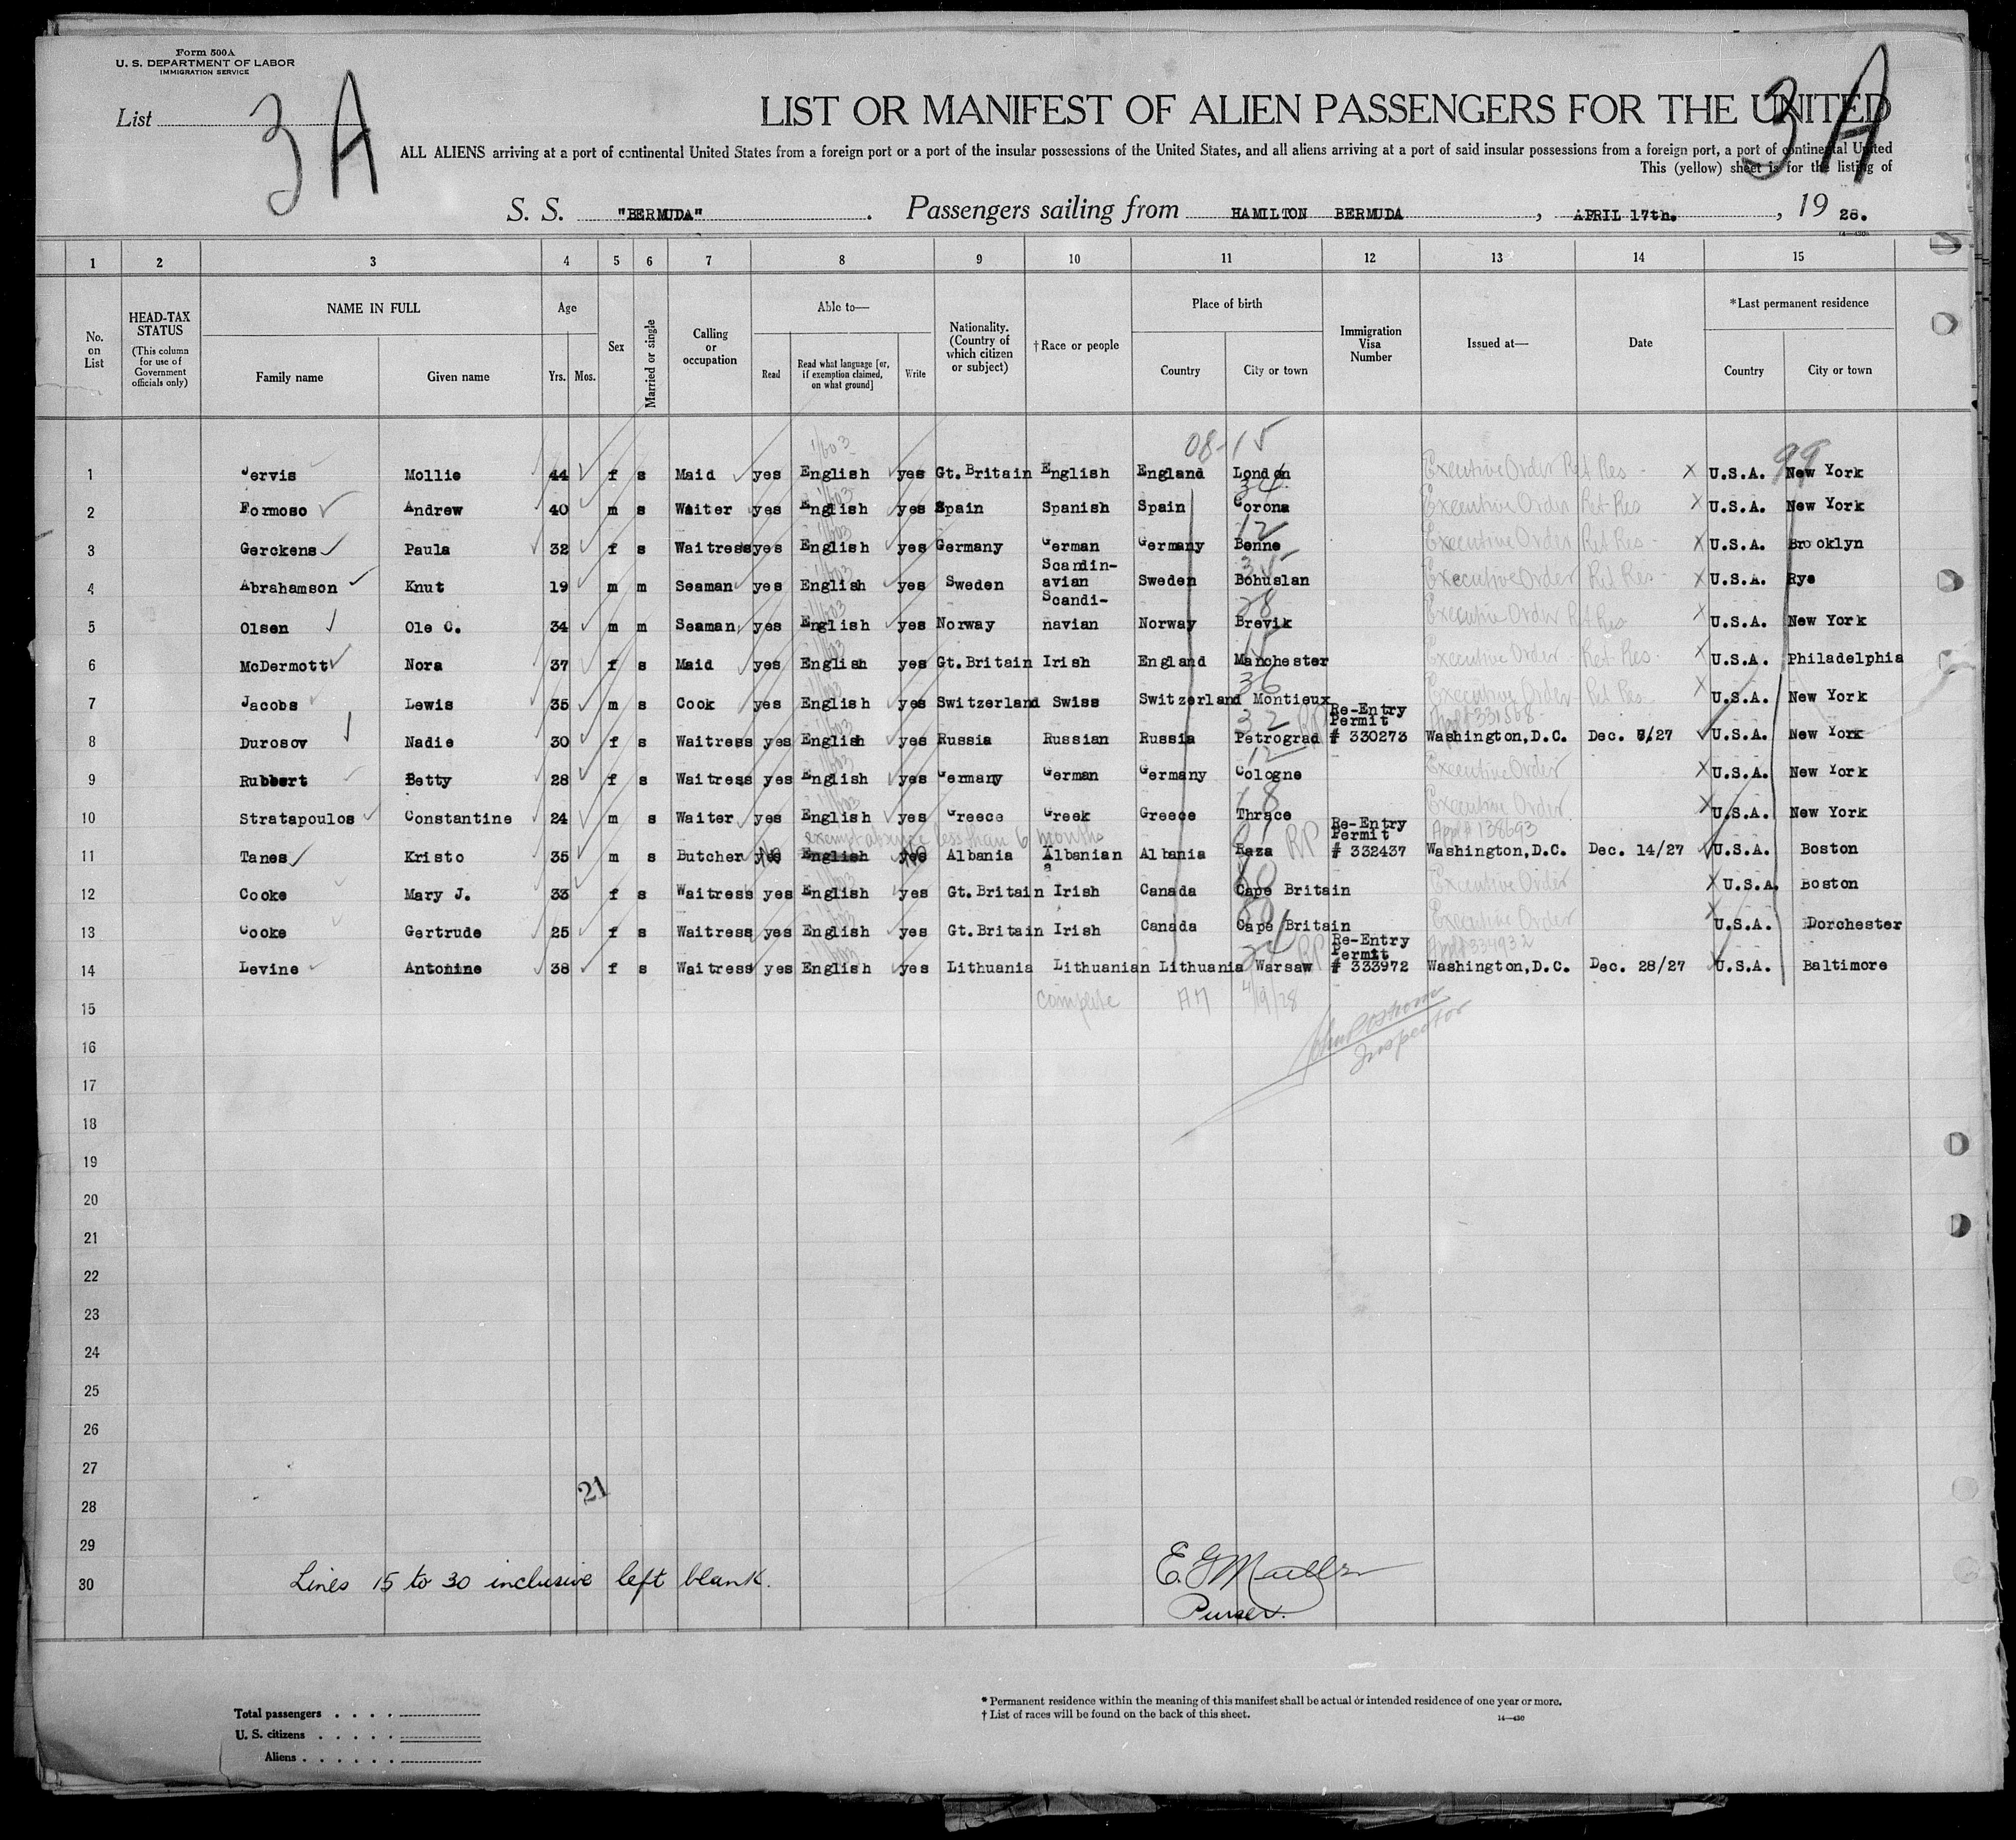 Form 500A
U. S. DEPARTMENT OF LABOR
IMMIGRATION SERVICE
List 3A
3A
LIST OR MANIFEST OF ALIEN PASSENGERS FOR THE UNITED
ALL ALIENS arriving at a port of continental United States from a foreign port or a port of the insular possessions of the United States, and all aliens arriving at a port of said insular possessions from a foreign port, a port of continental United
This (yellow) sheet is for the listing of
S. S. "BERMUDA". Passengers sailing from HAMILTON BERMUDA, APRIL 17th., 19 28.
14—430
1 2 3 4 5 6 7 8 9 10 11 12 13 14 15
No. on List
HEAD-TAX STATUS (This column for use of Government officials only)
NAME IN FULL Family name Given name
Age Yrs. Mos.
Sex
Married or single
Calling or occupation
Able to— Read Read what language [or, if exemption claimed, on what ground] Write
Nationality. (Country of which citizen or subject)
†Race or people
Place of birth Country City or town
Immigration Visa Number
Issued at—
Date
*Last permanent residence Country City or town
08-15 99
1 Jervis Mollie 44 f s Maid yes English yes Gt. Britain English England London Executive Order Ret Res - x U.S.A. New York
34
2 Formoso Andrew 40 m s Waiter yes English yes Spain Spanish Spain Corona Executive Order Ret Res x U.S.A. New York
12
3 Gerckens Paula 32 f s Waitress yes English yes Germany German Germany Benne Executive Order Ret Res - x U.S.A. Brooklyn
4 Abrahamson Knut 19 m m Seaman yes English yes Sweden Scandin-avian Sweden Bohuslan Executive Order Ret Res - x U.S.A. Rye
28
5 Olsen Ole C. 34 m m Seaman yes English yes Norway Scandi-navian Norway Brevik Executive Order Ret Res x U.S.A. New York
15
6 McDermott Nora 37 f s Maid yes English yes Gt. Britain Irish England Manchester Executive Order - Ret Res. x U.S.A. Philadelphia
36
7 Jacobs Lewis 35 m s Cook yes English yes Switzerland Swiss Switzerland Montieux Executive Order - Ret Res. x U.S.A. New York
32 RP
8 Durosov Nadie 30 f s Waitress yes English yes Russia Russian Russia Petrograd Re-Entry Permit # 330273 Washington,D.C. Dec. 8/27 U.S.A. New York
12
9 Rubbert Betty 28 f s Waitress yes English yes Germany German Germany Cologne Executive Order x U.S.A. New York
18
10 Stratapoulos Constantine 24 m s Waiter yes English yes Greece Greek Greece Thrace Executive Order x U.S.A. New York
exempt absence less than 6 months
01 RP Appl # 138693
11 Tanes Kristo 35 m s Butcher yes No English yes No Albania Albanian Albania Raza Re-Entry Permit # 332437 Washington,D.C. Dec. 14/27 U.S.A. Boston
80
12 Cooke Mary J. 33 f s Waitress yes English yes Gt. Britain Irish Canada Cape Britain Executive Order x U.S.A. Boston
80
13 Cooke Gertrude 25 f s Waitress yes English yes Gt. Britain Irish Canada Cape Britain Executive Order x U.S.A. Dorchester
24 RP Appl # 334932
14 Levine Antonine 38 f s Waitress yes English yes Lithuania Lithuanian Lithuania Warsaw Re-Entry Permit # 333972 Washington,D.C. Dec. 28/27 U.S.A. Baltimore
15 complete 4/19/28
Inspector
16
17
18
19
20
21
22
23
24
25
26
27
28 21
29
30 Lines 15 to 30 inclusive left blank.
Purser.
Total passengers
U. S. citizens
Aliens
* Permanent residence within the meaning of this manifest shall be actual or intended residence of one year or more.
† List of races will be found on the back of this sheet.
14—430